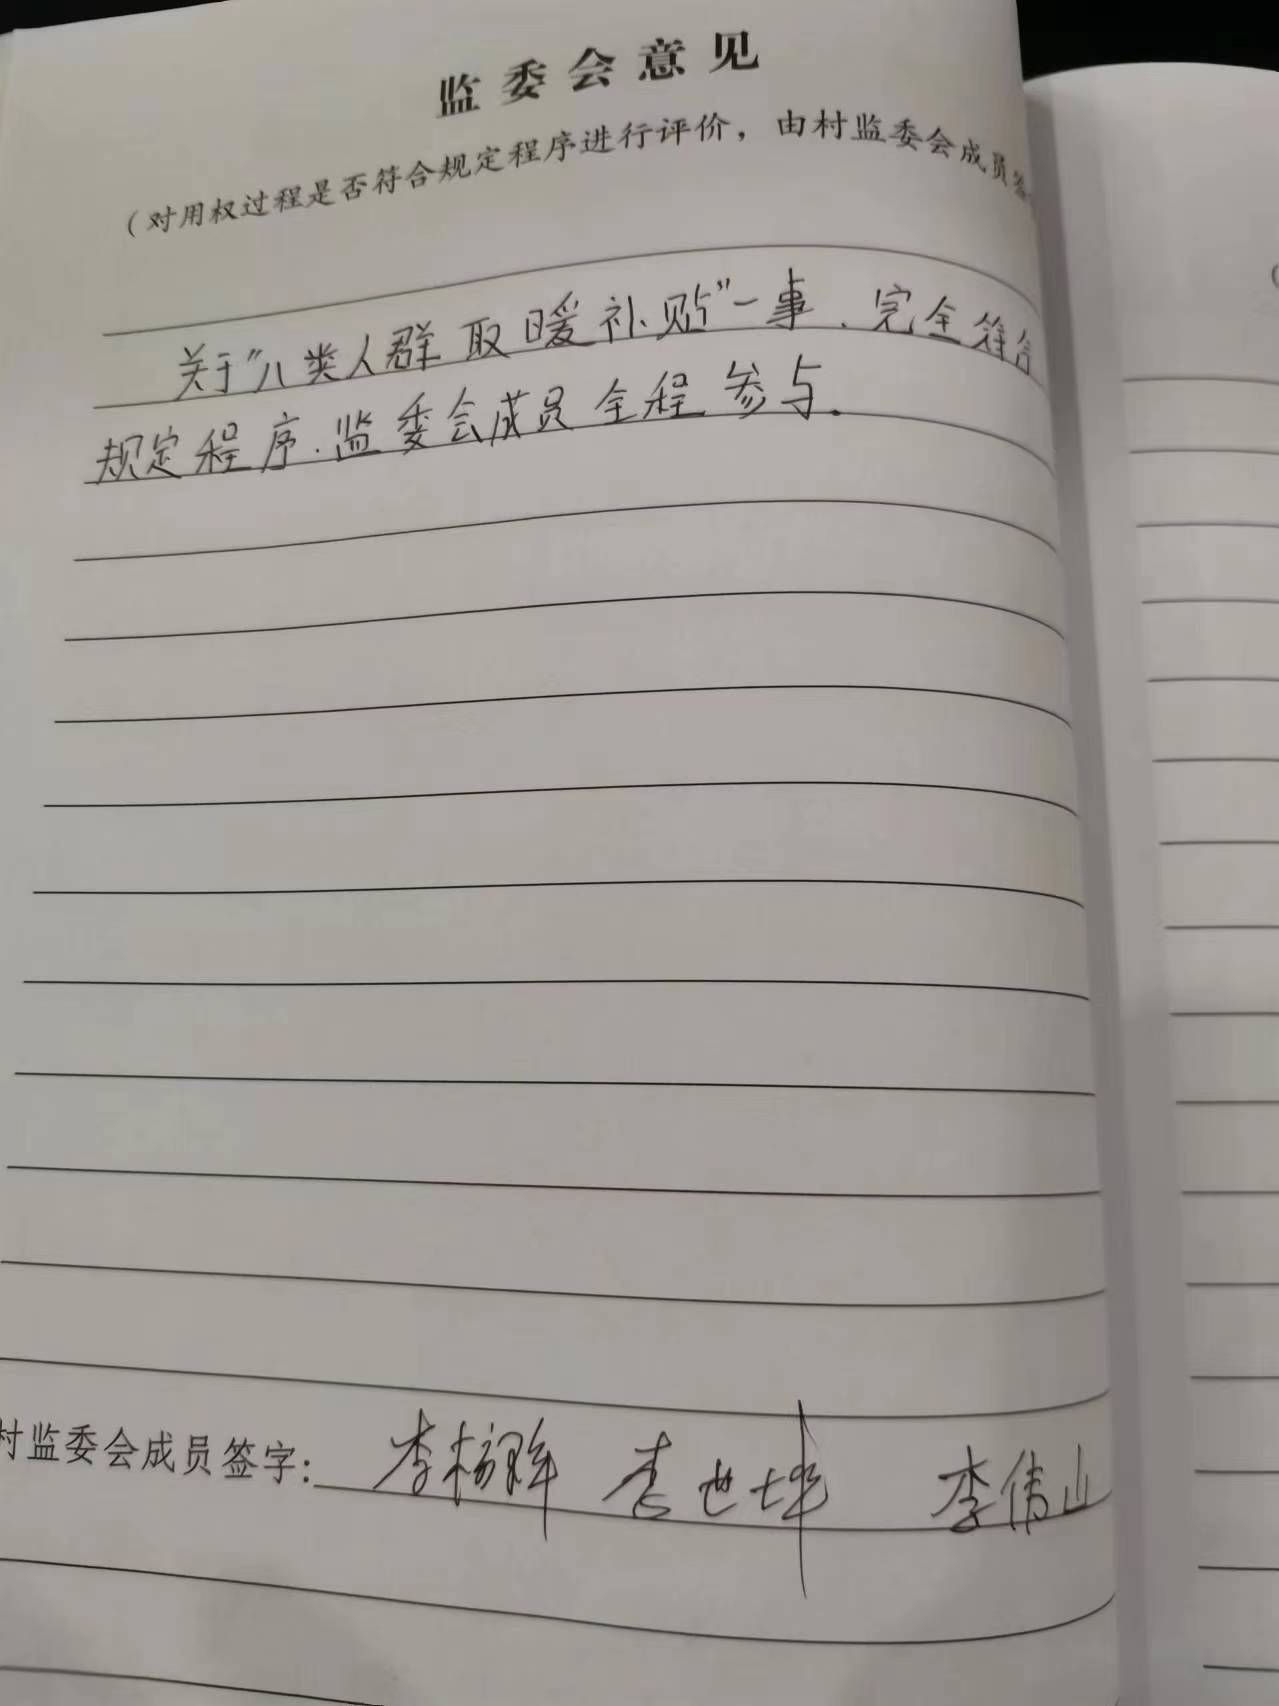 监委会意见
（对用权过程是否符合规定程序进行评价，由村监委会成员签
关于"八类人群取暖补贴"一事、完全符合
规定程序.监委会成员全程参与.
村监委会成员签字： 李 李世坤 李伟山